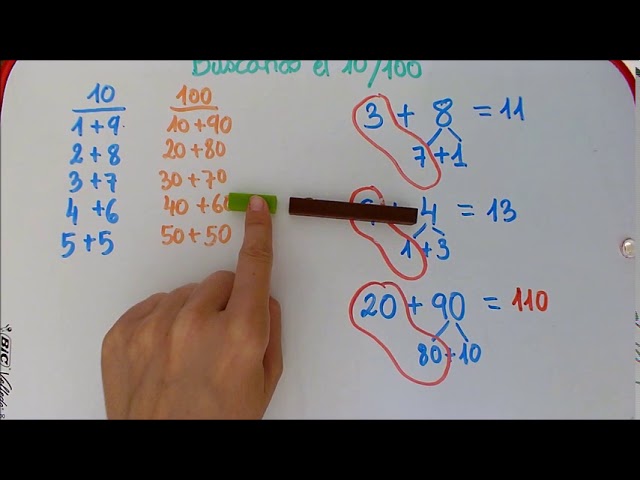 Buscando el 10/100
10
1+9
2+8
3+7
4+6
5+5
100
10+90
20+80
30+70
40+60
50+50
3 + 8 = 11
7+1
+ 4 = 13
1+3
20 + 90 = 110
80+10
BIC